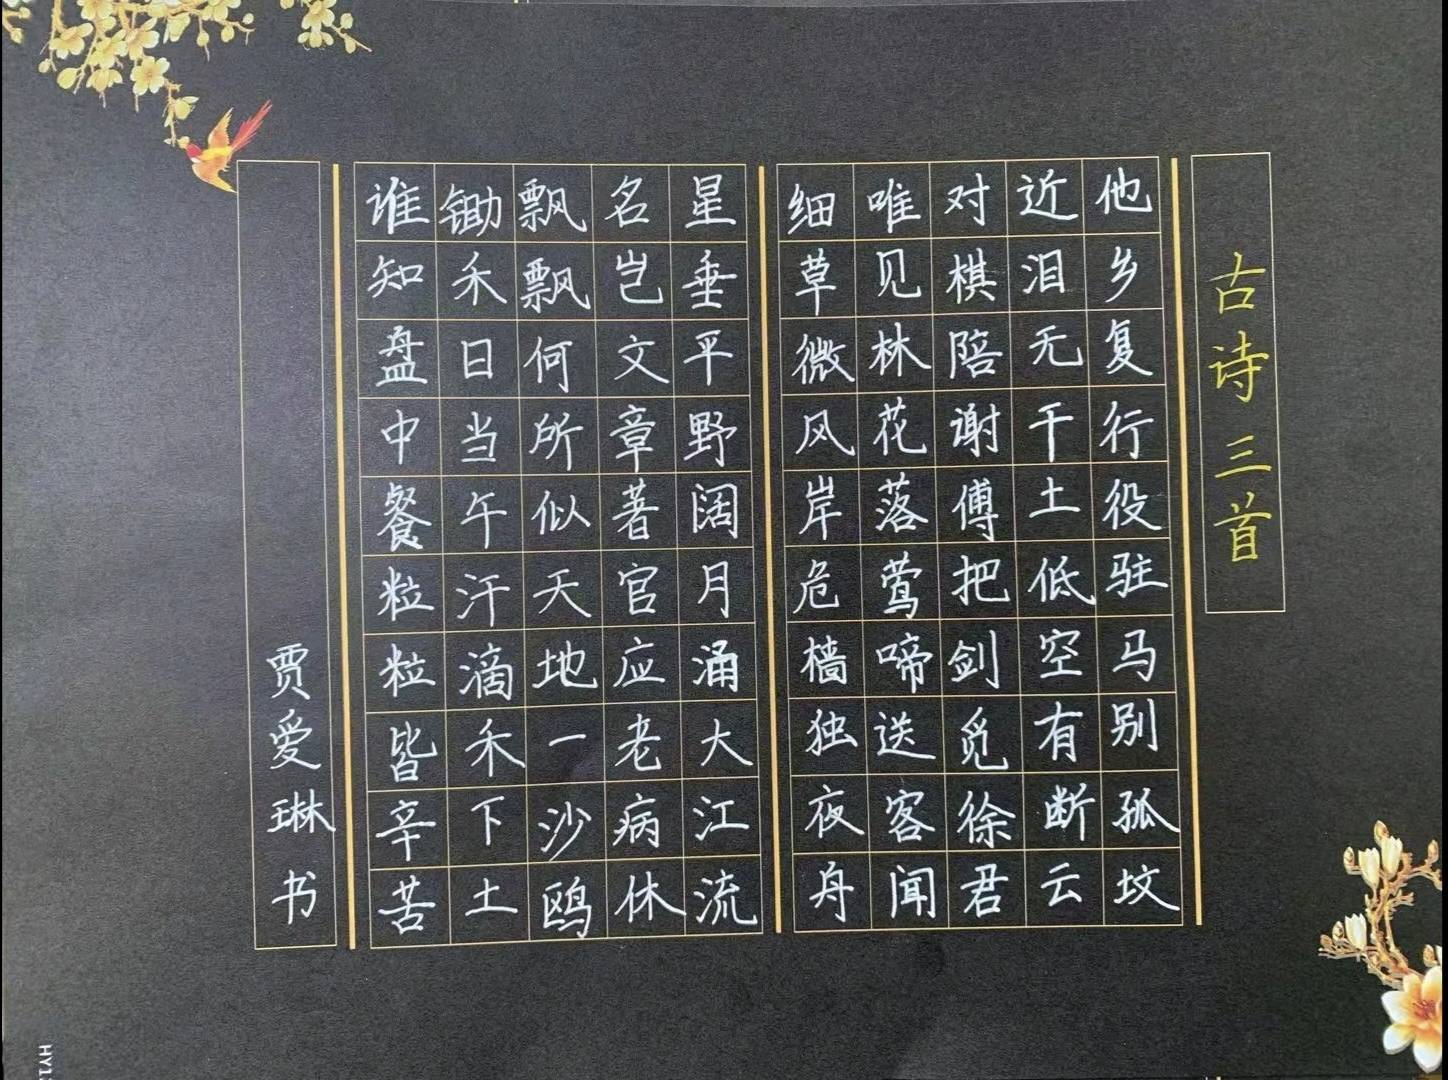 古诗三首
他乡复行役驻马别孤坟
近泪无干土低空有断云
对棋陪谢傅把剑觅徐君
唯见林花落莺啼送客闻
细草微风岸危樯独夜舟
星垂平野阔月涌大江流
名岂文章著官应老病休
飘飘何所似天地一沙鸥
锄禾日当午汗滴禾下土
谁知盘中餐粒粒皆辛苦
贾爱琳书